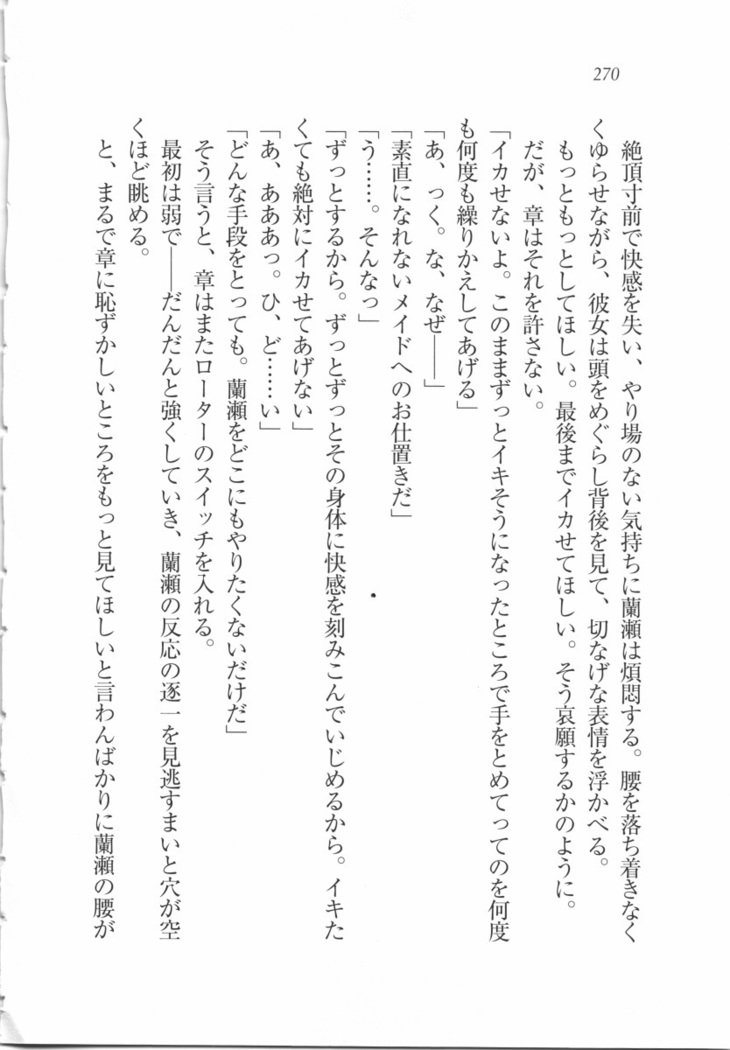 270
絶頂寸前で快感を失い、やり場のない気持ちに蘭瀬は煩悶する。腰を落ち着きなく
くゆらせながら、彼女は頭をめぐらし背後を見て、切なげな表情を浮かべる。
もっともっとしてほしい。最後までイカせてほしい。そう哀願するかのように。
だが、章はそれを許さない。
「イカせないよ。このままずっとイキそうになったところで手をとめてってのを何度
も何度も繰りかえしてあげる」
「あ、っく。な、なぜ――」
「素直になれないメイドへのお仕置きだ」
「う……。そんなっ」
「ずっとするから。ずっとずっとその身体に快感を刻みこんでいじめるから。イキた
くても絶対にイカせてあげない」
「あ、あああっ。ひ、ど……い」
「どんな手段をとっても。蘭瀬をどこにもやりたくないだけだ」
そう言うと、章はまたローターのスイッチを入れる。
最初は弱で――だんだんと強くしていき、蘭瀬の反応の逐一を見逃すまいと穴が空
くほど眺める。
と、まるで章に恥ずかしいところをもっと見てほしいと言わんばかりに蘭瀬の腰が